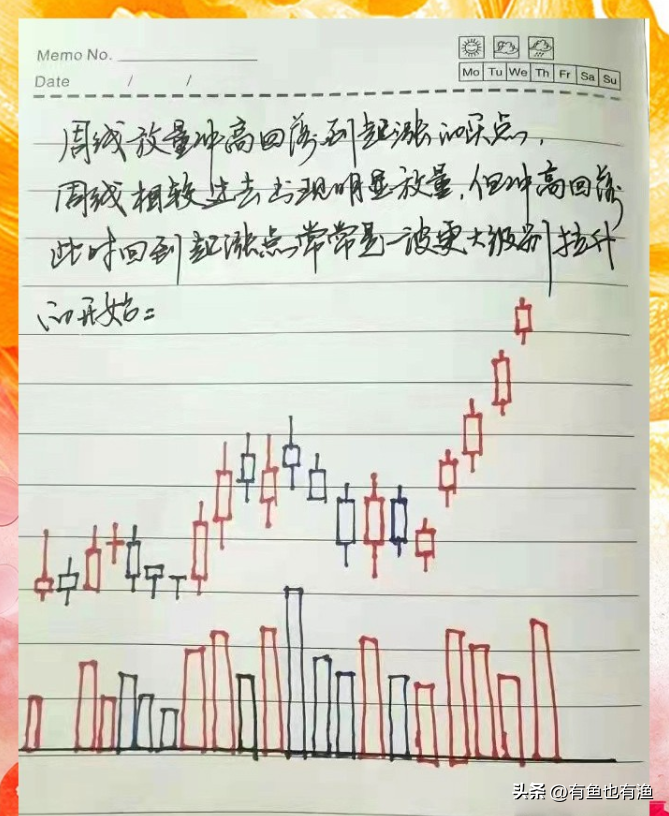 Memo No.
Mo Tu We Th Fr Sa Su
Date / /
周线放量冲高回落到起涨的买点,
周线相较过去出现明显放量,但冲高回落
此时回到起涨点常常是一波更大级别拉升
的开始:
头条 @有鱼也有渔